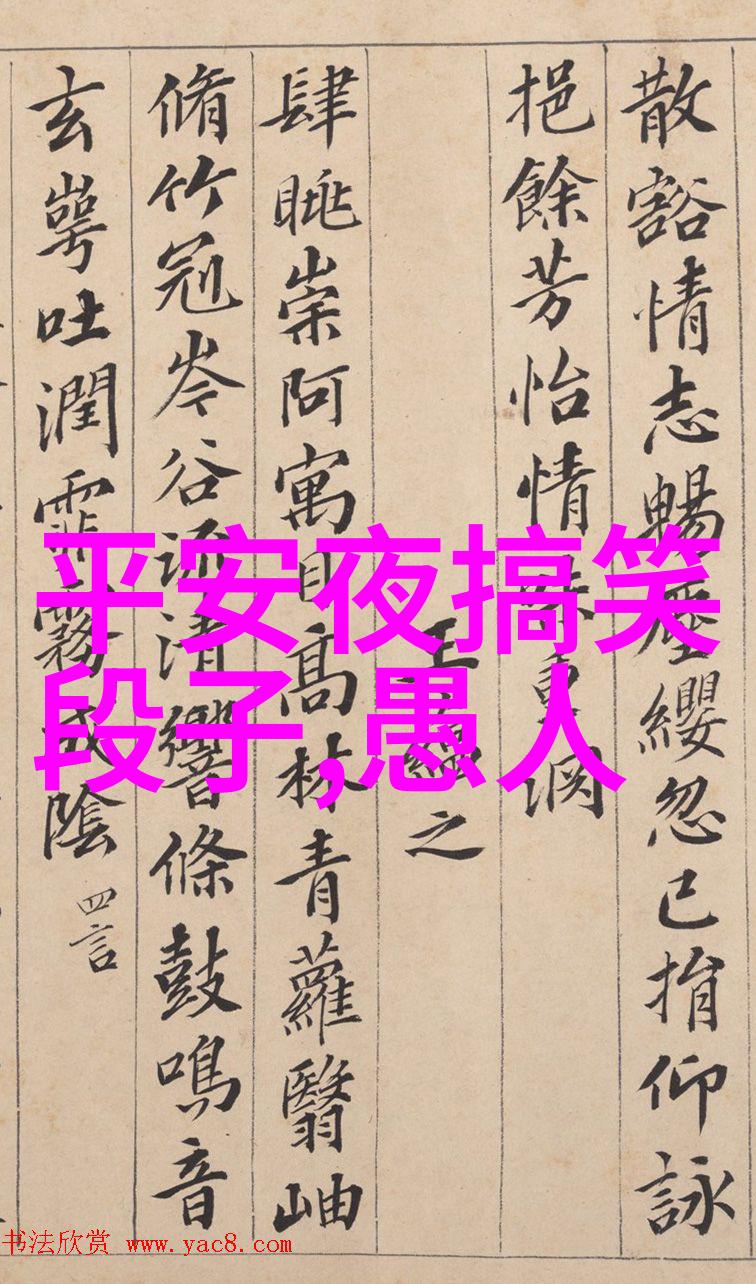 散豁情志暢塵纓忽已捐仰詠
挹餘芳怡情味重淵
王之
肆眺崇阿寓目高林青蘿翳岫
脩竹冠岑谷流清響條鼓鳴音
玄崿吐潤霏霧成陰 四言
平安夜搞笑
段子,愚人
书法欣赏 www.yac8.com